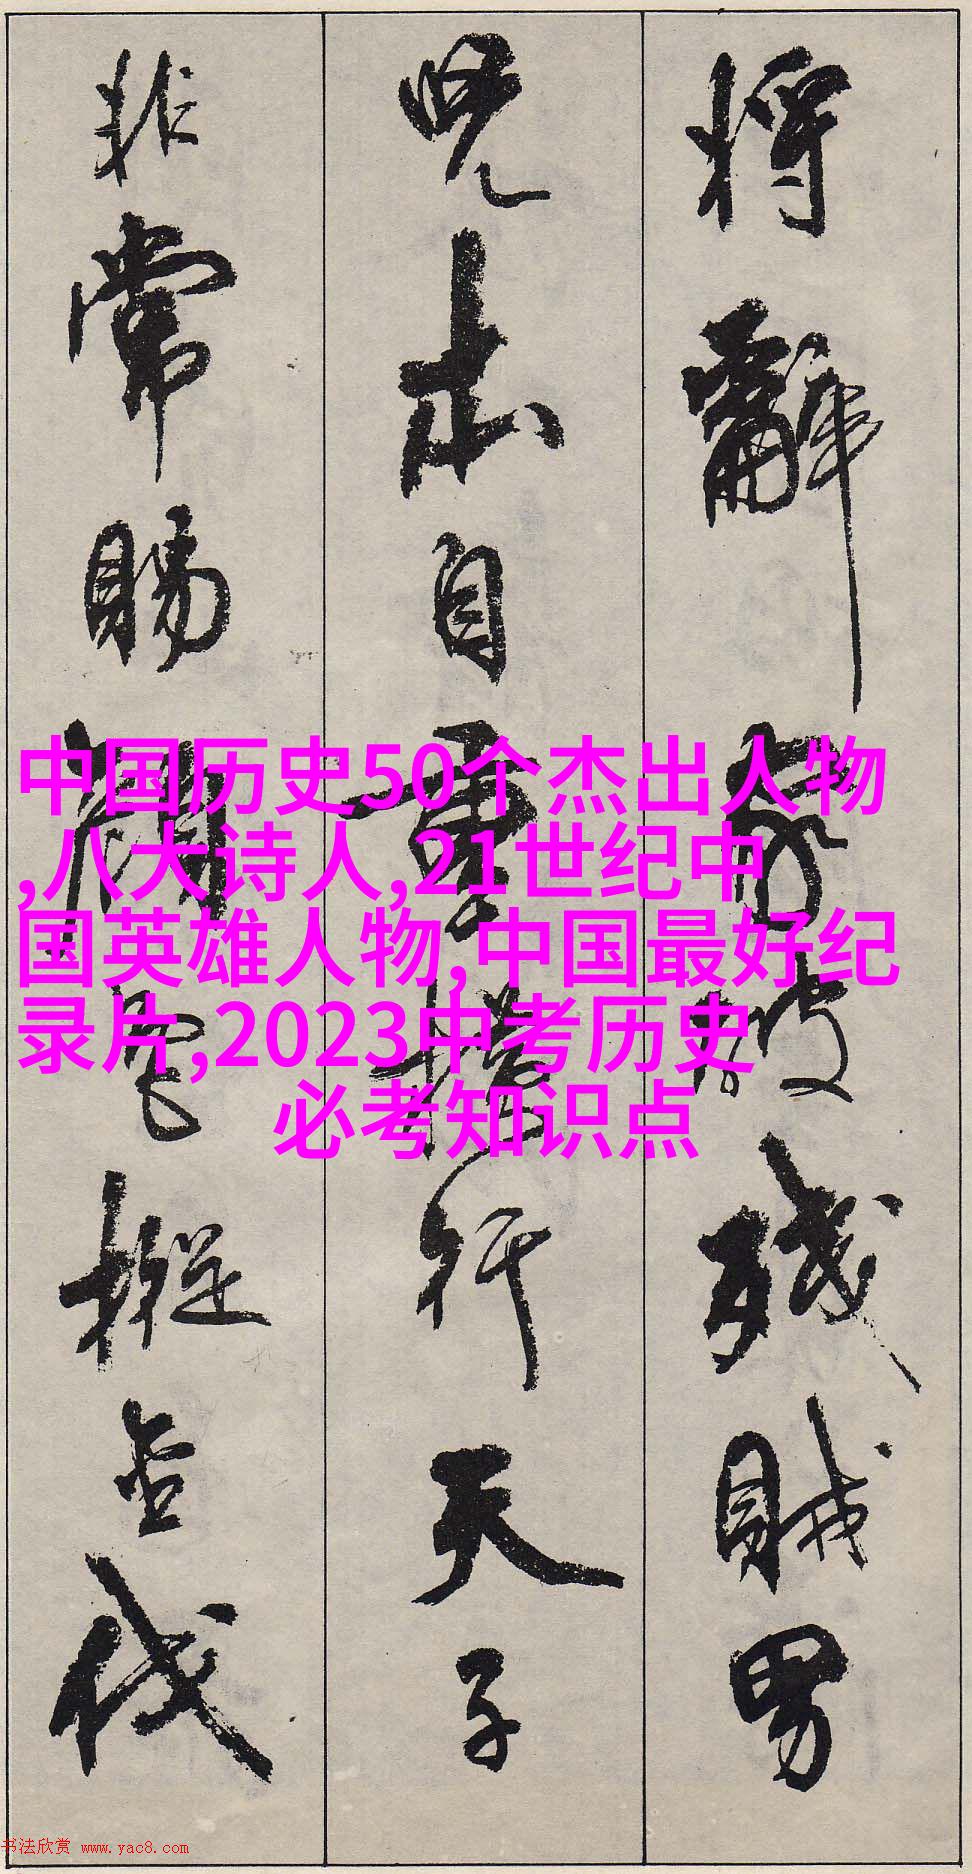 将辭家破殘賊男
兒本自重橫行天子
非常賜顏色摐金伐
中国历史50个杰出人物
,八大诗人,21世纪中
国英雄人物,中国最好纪
录片,2023中考历史
必考知识点
书法欣赏 www.yac8.com